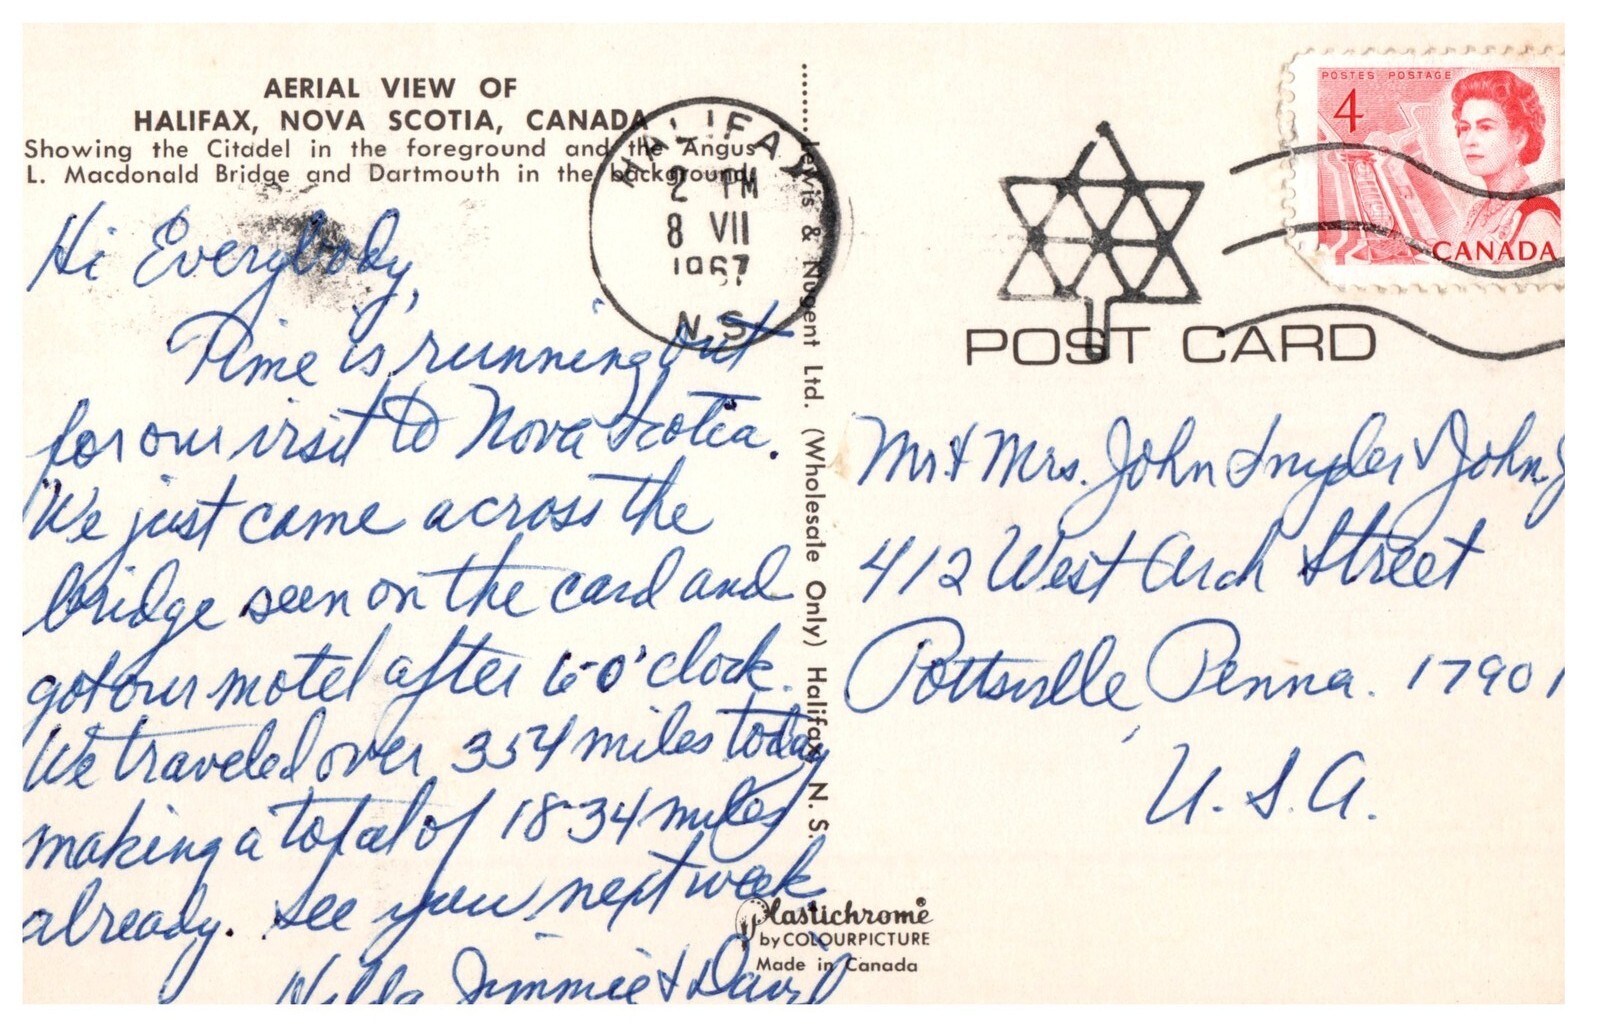 AERIAL VIEW OF
HALIFAX, NOVA SCOTIA, CANADA
Showing the Citadel in the foreground and the Angus
L. Macdonald Bridge and Dartmouth in the background.
Hi Everybody,
Time is running out
for our visit to Nova Scotia.
We just came across the
bridge seen on the card and
got our motel after 6 o'clock.
We traveled over 354 miles today
making a total of 1834 miles
already. See you next week
Jimmie & David
HALIFAX
2 PM
8 VII
1967
N.S.
Lewis & Nugent Ltd. (Wholesale Only) Halifax, N. S.
Plastichrome®
by COLOURPICTURE
Made in Canada
POSTES POSTAGE
4
CANADA
POST CARD
Mr & Mrs. John Snyder & John J
412 West Arch Street
Pottsville, Penna. 17901
U. S. A.